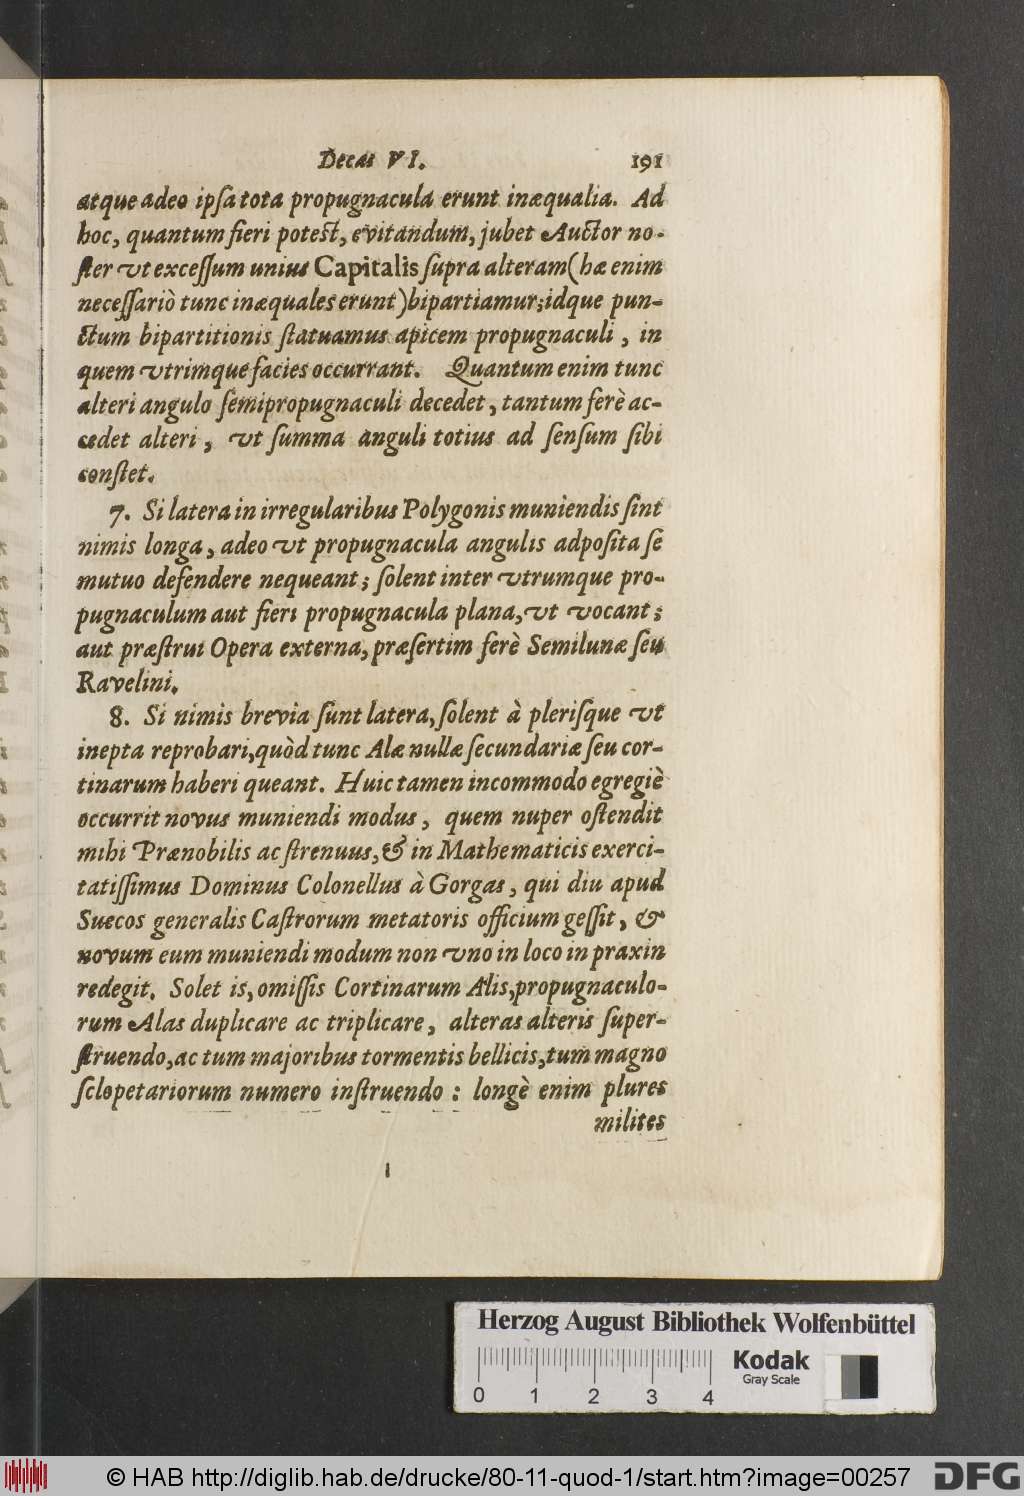 Decas VI. 191
atque adeo ipſa tota propugnacula erunt inæqualia. Ad
hoc, quantum fieri poteſt, evitandum, jubet Auctor no-
ſter vt exceſſum unius Capitalis ſupra alteram (hæ enim
neceſſariò tunc inæquales erunt) bipartiamur; idque pun-
ctum bipartitionis ſtatuamus apicem propugnaculi, in
quem vtrimque facies occurrant. Quantum enim tunc
alteri angulo ſemipropugnaculi decedet, tantum ferè ac-
cedet alteri, vt ſumma anguli totius ad ſenſum ſibi
conſtet.
7. Si latera in irregularibus Polygonis muniendis ſint
nimis longa, adeo vt propugnacula angulis adpoſita ſe
mutuo defendere nequeant; ſolent inter vtrumque pro-
pugnaculum aut fieri propugnacula plana, vt vocant;
aut præſtrui Opera externa, præſertim ferè Semilunæ ſeu
Ravelini.
8. Si nimis brevia ſunt latera, ſolent à pleriſque vt
inepta reprobari, quòd tunc Alæ nullæ ſecundariæ ſeu cor-
tinarum haberi queant. Huic tamen incommodo egregiè
occurrit novus muniendi modus, quem nuper oſtendit
mihi Prænobilis ac ſtrenuus, & in Mathematicis exerci-
tatiſſimus Dominus Colonellus à Gorgas, qui diu apud
Suecos generalis Caſtrorum metatoris officium geſſit, &
novum eum muniendi modum non vno in loco in praxin
redegit. Solet is, omiſſis Cortinarum Alis, propugnaculo-
rum Alas duplicare ac triplicare, alteras alteris ſuper-
ſtruendo, ac tum majoribus tormentis bellicis, tum magno
ſclopetariorum numero inſtruendo: longè enim plures
milites
Herzog August Bibliothek Wolfenbüttel
0 1 2 3 4
Kodak
Gray Scale
© HAB http://diglib.hab.de/drucke/80-11-quod-1/start.htm?image=00257
DFG